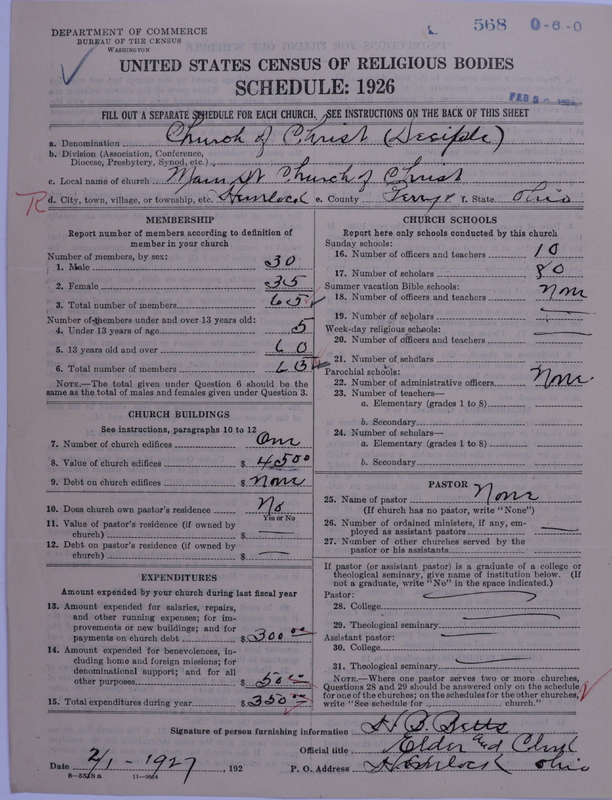 DEPARTMENT OF COMMERCE
BUREAU OF THE CENSUS
WASHINGTON
568 0-6-0
UNITED STATES CENSUS OF RELIGIOUS BODIES
SCHEDULE: 1926
FEB 5
FILL OUT A SEPARATE SCHEDULE FOR EACH CHURCH. SEE INSTRUCTIONS ON THE BACK OF THIS SHEET
a. Denomination Church of Christ (Disciple)
b. Division (Association, Conference, Diocese, Presbytery, Synod, etc.)
c. Local name of church Main St Church of Christ
d. City, town, village, or township, etc. Hemlock e. County Perry f. State Ohio
MEMBERSHIP
Report number of members according to definition of
member in your church
Number of members, by sex:
1. Male 30
2. Female 35
3. Total number of members 65
Number of members under and over 13 years old:
4. Under 13 years of age 5
5. 13 years old and over 60
6. Total number of members 65
NOTE.—The total given under Question 6 should be
same as the total of males and females given under Question 3.
CHURCH BUILDINGS
See instructions, paragraphs 10 to 12
7. Number of church edifices One
8. Value of church edifices $ 4500
9. Debt on church edifices $ None
10. Does church own pastor's residence No
Yes or No
11. Value of pastor's residence (if owned by
church) $
12. Debt on pastor's residence (if owned by
church) $
EXPENDITURES
Amount expended by your church during last fiscal year
13. Amount expended for salaries, repairs,
and other running expenses; for im-
provements or new buildings; and for
payments on church debt $ 300 00
14. Amount expended for benevolences, in-
cluding home and foreign missions; for
denominational support; and for all
other purposes $ 50 00
15. Total expenditures during year $ 350 00
CHURCH SCHOOLS
Report here only schools conducted by this church
Sunday schools:
16. Number of officers and teachers 10
17. Number of scholars 80
Summer vacation Bible schools:
18. Number of officers and teachers None
19. Number of scholars
Week-day religious schools:
20. Number of officers and teachers
21. Number of scholars
Parochial schools:
22. Number of administrative officers None
23. Number of teachers—
a. Elementary (grades 1 to 8)
b. Secondary
24. Number of scholars—
a. Elementary (grades 1 to 8)
b. Secondary
PASTOR
25. Name of pastor None
(If church has no pastor, write "None")
26. Number of ordained ministers, if any, em-
ployed as assistant pastors
27. Number of other churches served by the
pastor or his assistants
If pastor (or assistant pastor) is a graduate of a college or
theological seminary, give name of institution below. (If
not a graduate, write "No" in the space indicated.)
Pastor:
28. College
29. Theological seminary
Assistant pastor:
30. College
31. Theological seminary
NOTE.—Where one pastor serves two or more churches,
Questions 28 and 29 should be answered only on the schedule
for one of the churches; on the schedules for the other churches,
write "See schedule for church."
Signature of person furnishing information H B Betts
Official title Elder and Clerk
Date 2/1-1927, 192 P. O. Address Hemlock Ohio
8-5518 a 11-9664